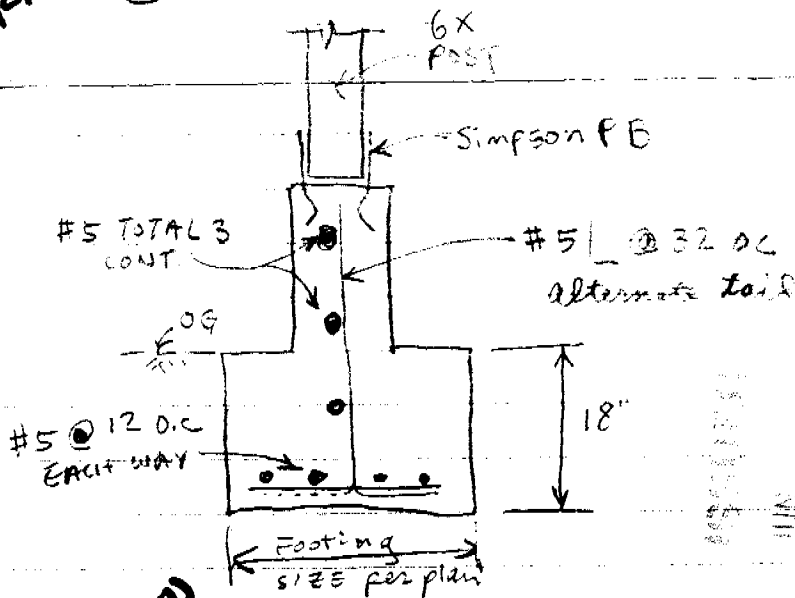 6X
POST
Simpson PB
#5 TOTAL 3
CONT.
#5 @ 32 OC
alternate tail
OG
#5 @ 12 O.C
EACH WAY
18"
Footing
SIZE per plan